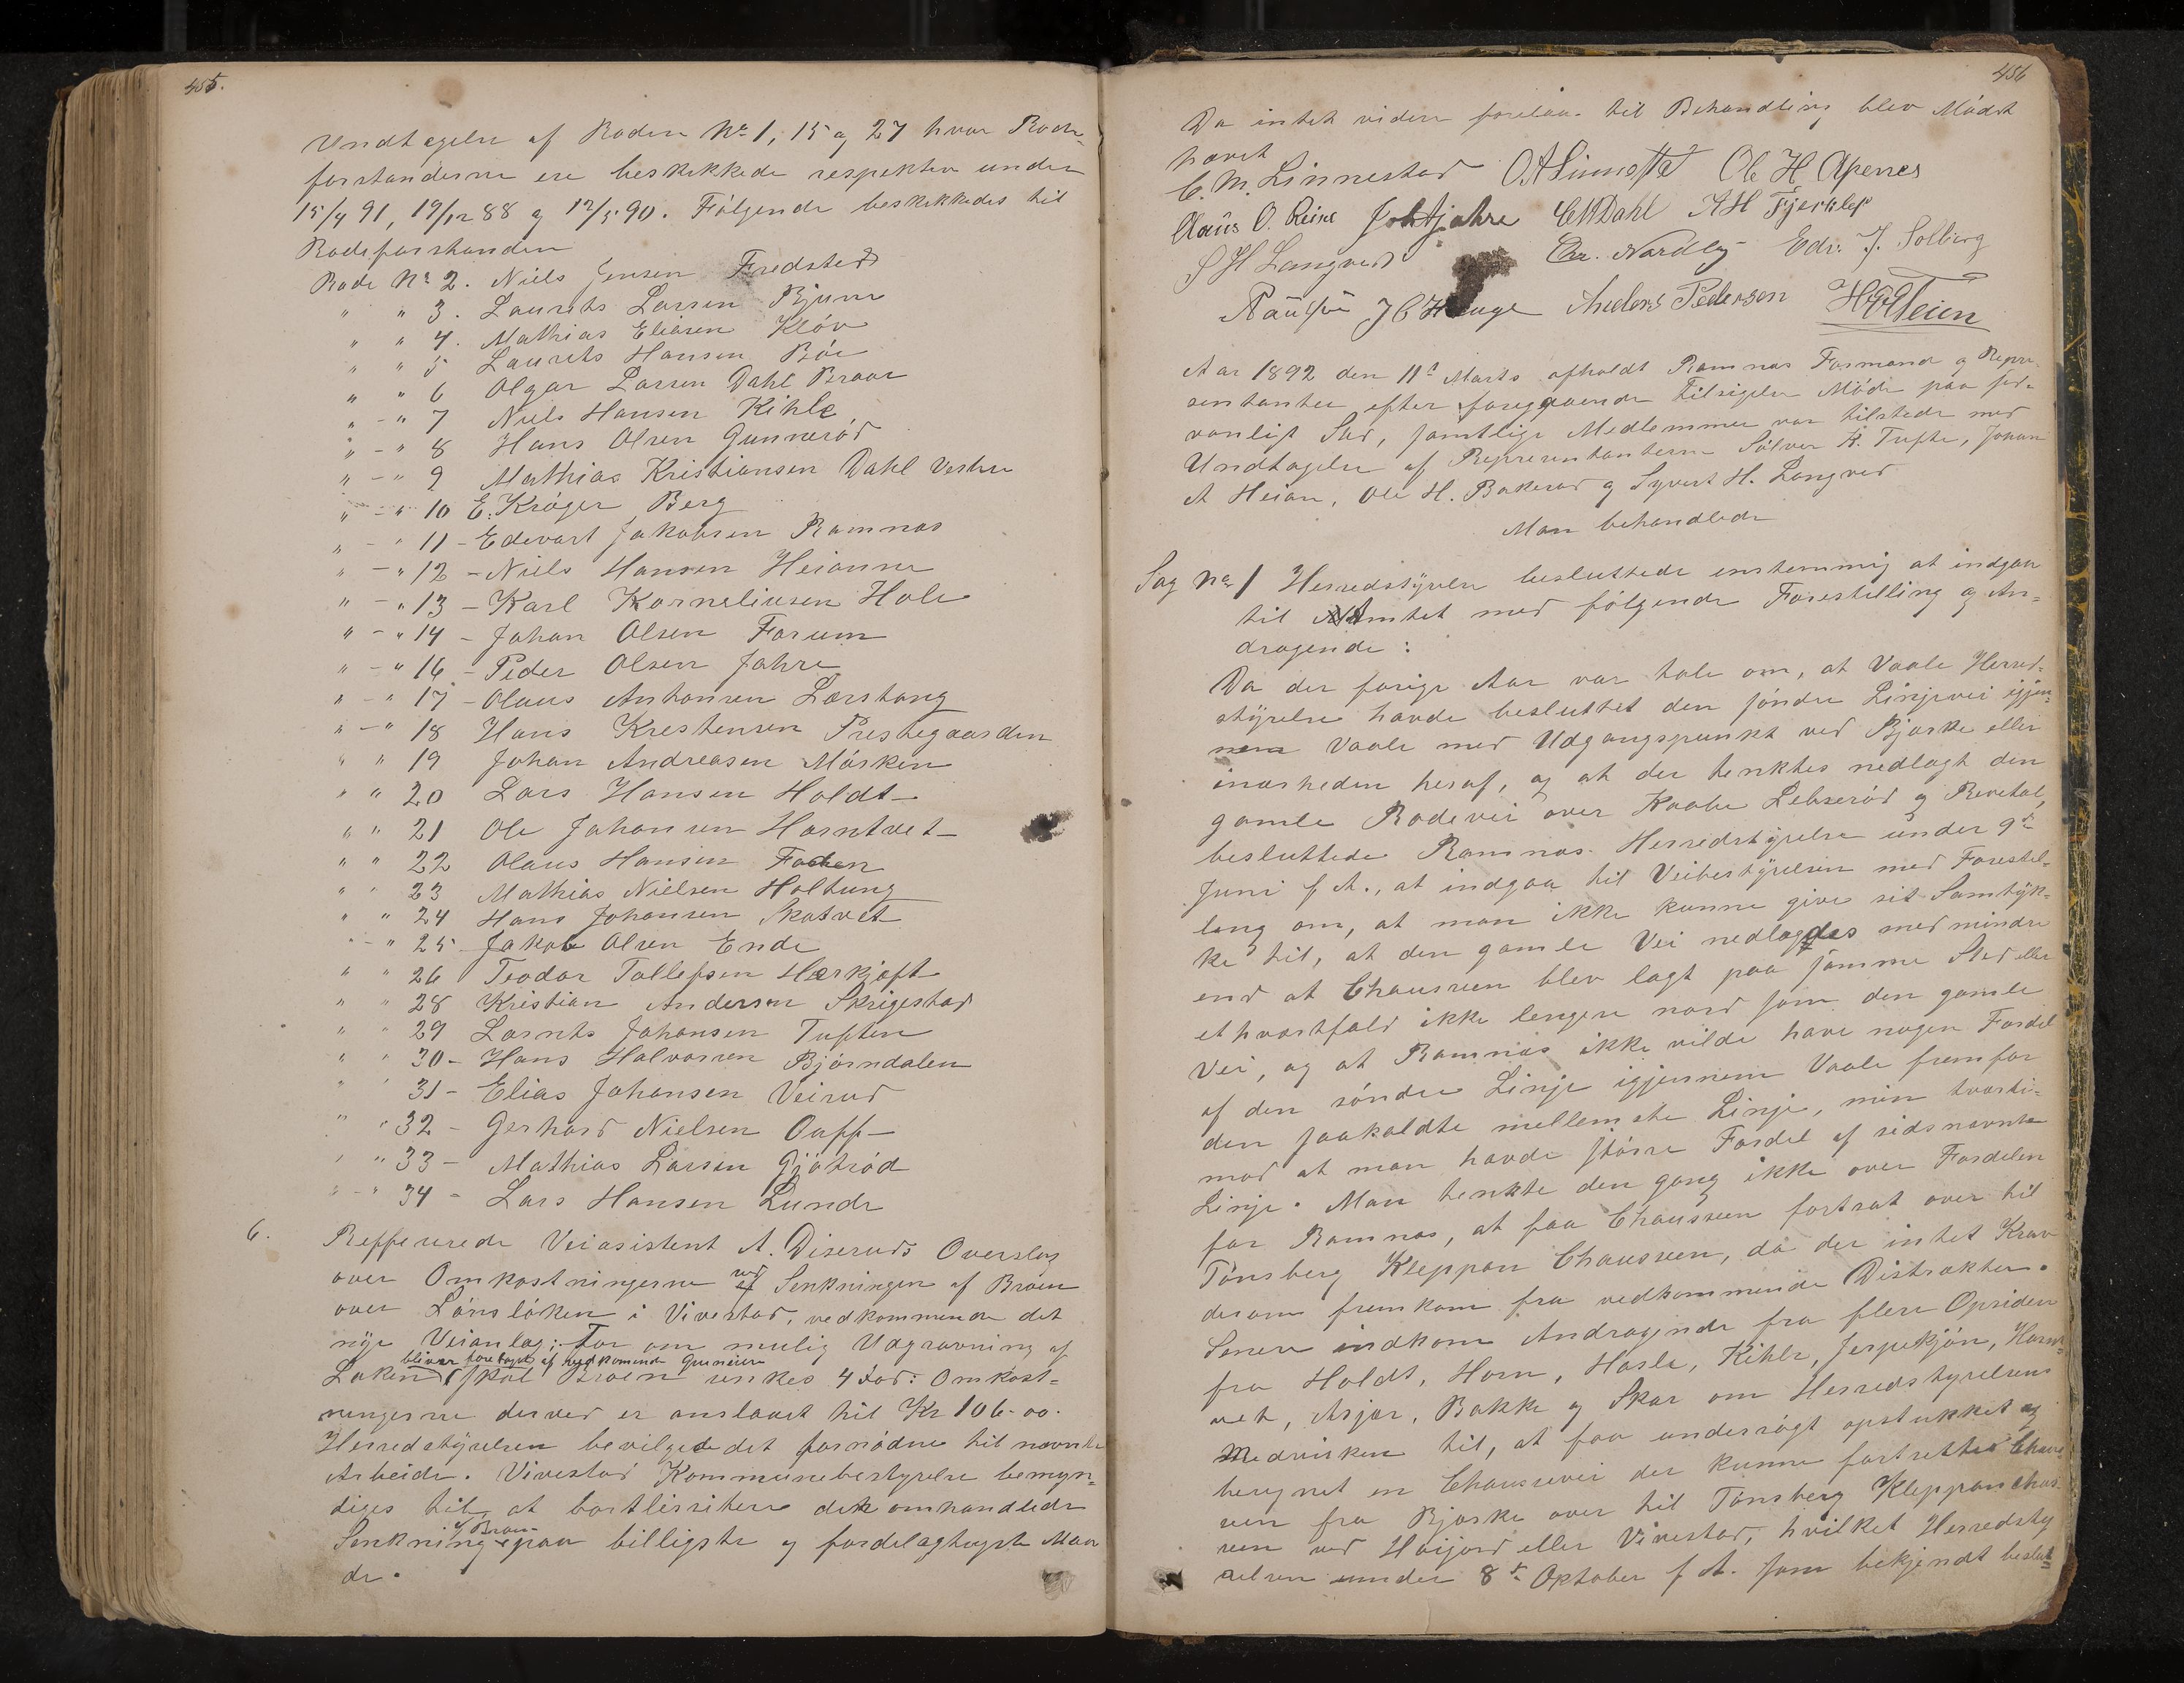 455.
Undtagelse af Roden No 1, 15 og 27 hvor Rode-
forstanderne ere beskikkede respektive under
15/4 91, 19/12 88 og 12/5 90. Følgende beskikkedes til
Rodeforstander
Rode No 2. Niels Jensen Fredsted
" " 3. Laurits Larsen Bjune
" " 4. Mathias Eliasen Kløv
" " 5 Laurits Hansen Bøe
" " 6 Olgar Larsen Dahl Braar
" - " 7 Niels Hansen Kihle
" - " 8 Hans Olsen Gunnerød
" - " 9 Mathias Kristiansen Dahl Vestre
" - " 10 E. Krøger Berg
" - " 11 - Edevart Jakobsen Ramnæs
" - " 12 - Niels Hansen Heianne
" - " 13 - Karl Korneliusen Hole
" - " 14 - Johan Olsen Forum
" - " 16 - Peder Olsen Jahre
" - " 17 - Olaus Anthonsen Lørstang
" - " 18 Hans Krestensen Prestegaarden
" " 19 Johan Andreasen Mørken
" " 20 Lars Hansen Holdt -
" " 21 Ole Johansen Horntvet -
" " 22 Olaus Hansen Foden
" " 23 Mathias Nielsen Holtung
" " 24 Hans Johansen Skatvet
" - " 25 Jakob Olsen Ende
" " 26 Teodor Tollefsen Hærkjøft
" " 28 Kristian Andersen Skrigestad
" " 29 Lornts Johansen Tuften
" " 30 - Hans Halvorsen Bjørndalen
" " 31 - Elias Johansen Veirud
" " 32 - Gerhard Nielsen Ouff -
" " 33 - Mathias Larsen Gjøtrød
" - " 34 - Lars Hansen Lunde
6. Reffererede Veiasistent A. Diseruds Overslag
over Omkostningerne ved Senkningen af Broen
over Lønsløken i Vivestad, vedkommende det
nye Veianlæg; For om mulig Udgravning af
bliver foretaget af vedkomende Grunneiere
Løken skal Broen senkes 4 Fod: Omkost=
ningerne derved er anslaaet til Kr 106-00.
Herredstyrelsen bevilgede det fornødne til nævnte
Arbeide. Vivestad Kommunebestyrelse bemyn=
diges til, at bortlissitere det omhandlede
af Broen
Senkning paa billigste og fordelagtigste Maa
de.
456
Da intet videre forelaa til Behandling blev Mødet
hævet
C. M. Linnestad O A Linnestad Ole H Apenes
Claus O. Reine Joh Hjahre C M Dahl A H Fjerklep
S H Langved Chr. Nordby Edv. J. Solberg
J C Hauge Anders Pedersen H Steien
Aar 1892 den 11te Marts afholdt Ramnæs Formand og Repre-
sentanter efter foregaaende Tilsigelse Møde paa sed-
vanligt Sted, samtlige Medlemmer var tilstede med
Undtagelse af Repræsentanterne Sølver K. Tufte, Johan
A Heian, Ole H. Bakerød og Syvert H. Langved
Man behandlede
Sag No 1 Herredstyrelse besluttede enstemmig at indgaa
til Amtet med følgende Forestilling og An=
dragende:
Da der forige Aar var tale om, at Vaale Herred=
styrelse havde besluttet den søndre Linjevei igjen=
nem Vaale med Udgangspunkt ved Bjørke eller
inærheden heraf, og at der tenktes nedlagt den
gamle Rodevei over Kaabe Lebserød og Revetal,
besluttede Ramnæs Herredstyrelse under 9de
Juni f. A., at indgaa til Veibestyrelsen med Forestil=
ling om, at man ikke kunne give sit Samtyk=
ke til, at den gamle Vei nedlagdes med mindre
end at Chauseen blev lagt paa samme Sted eller
ethvertfald ikke lengere nord som den gamle
Vei, og at Ramnæs ikke vilde have nogen Fordel
af den søndre Linje igjennem Vaale fremfor
den saakaldte mellemste Linje, men tvorti=
mod at man havde større Fordel af sidsnævnte
Linje. Man tenkte den gang ikke over Fordelen
for Ramnæs, at faa Chausseen fortsat over til
Tønsberg Kleppan Chausseen, da der intet Krav
derom fremkom fra vedkommende Distrakter.
Senere indkom Andragende fra flere Opsidere
fra Holdt, Horn, Hasle, Kihle, Jerpekjøn, Hornt=
vet, Asjør, Bakke og Skar om Herredstyrelsens
Medvirken til, at faa undersøgt opstukket og
beregnet en Chausevei der kunne fortsettes Chau-
seen fra Bjørke over til Tønsberg Kleppanchos-
seen ved Høijord eller Vivestad, hvilket Herredsty
relsen under 8de Oktober f. A. som bekjendt beslut=